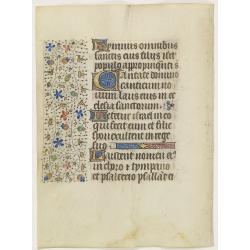 Hymnus omnibus
sanctis eius filiis isrl
populo appropinquanti s
Cantate domino
canticum no
uum laus eius in ec
clesia sanctorum
Letetur israel in eo
qui fecit eum et filie
syon exultent in rege
suo
Laudent nomen eius
in choro et tympano
et psalterio psallant e